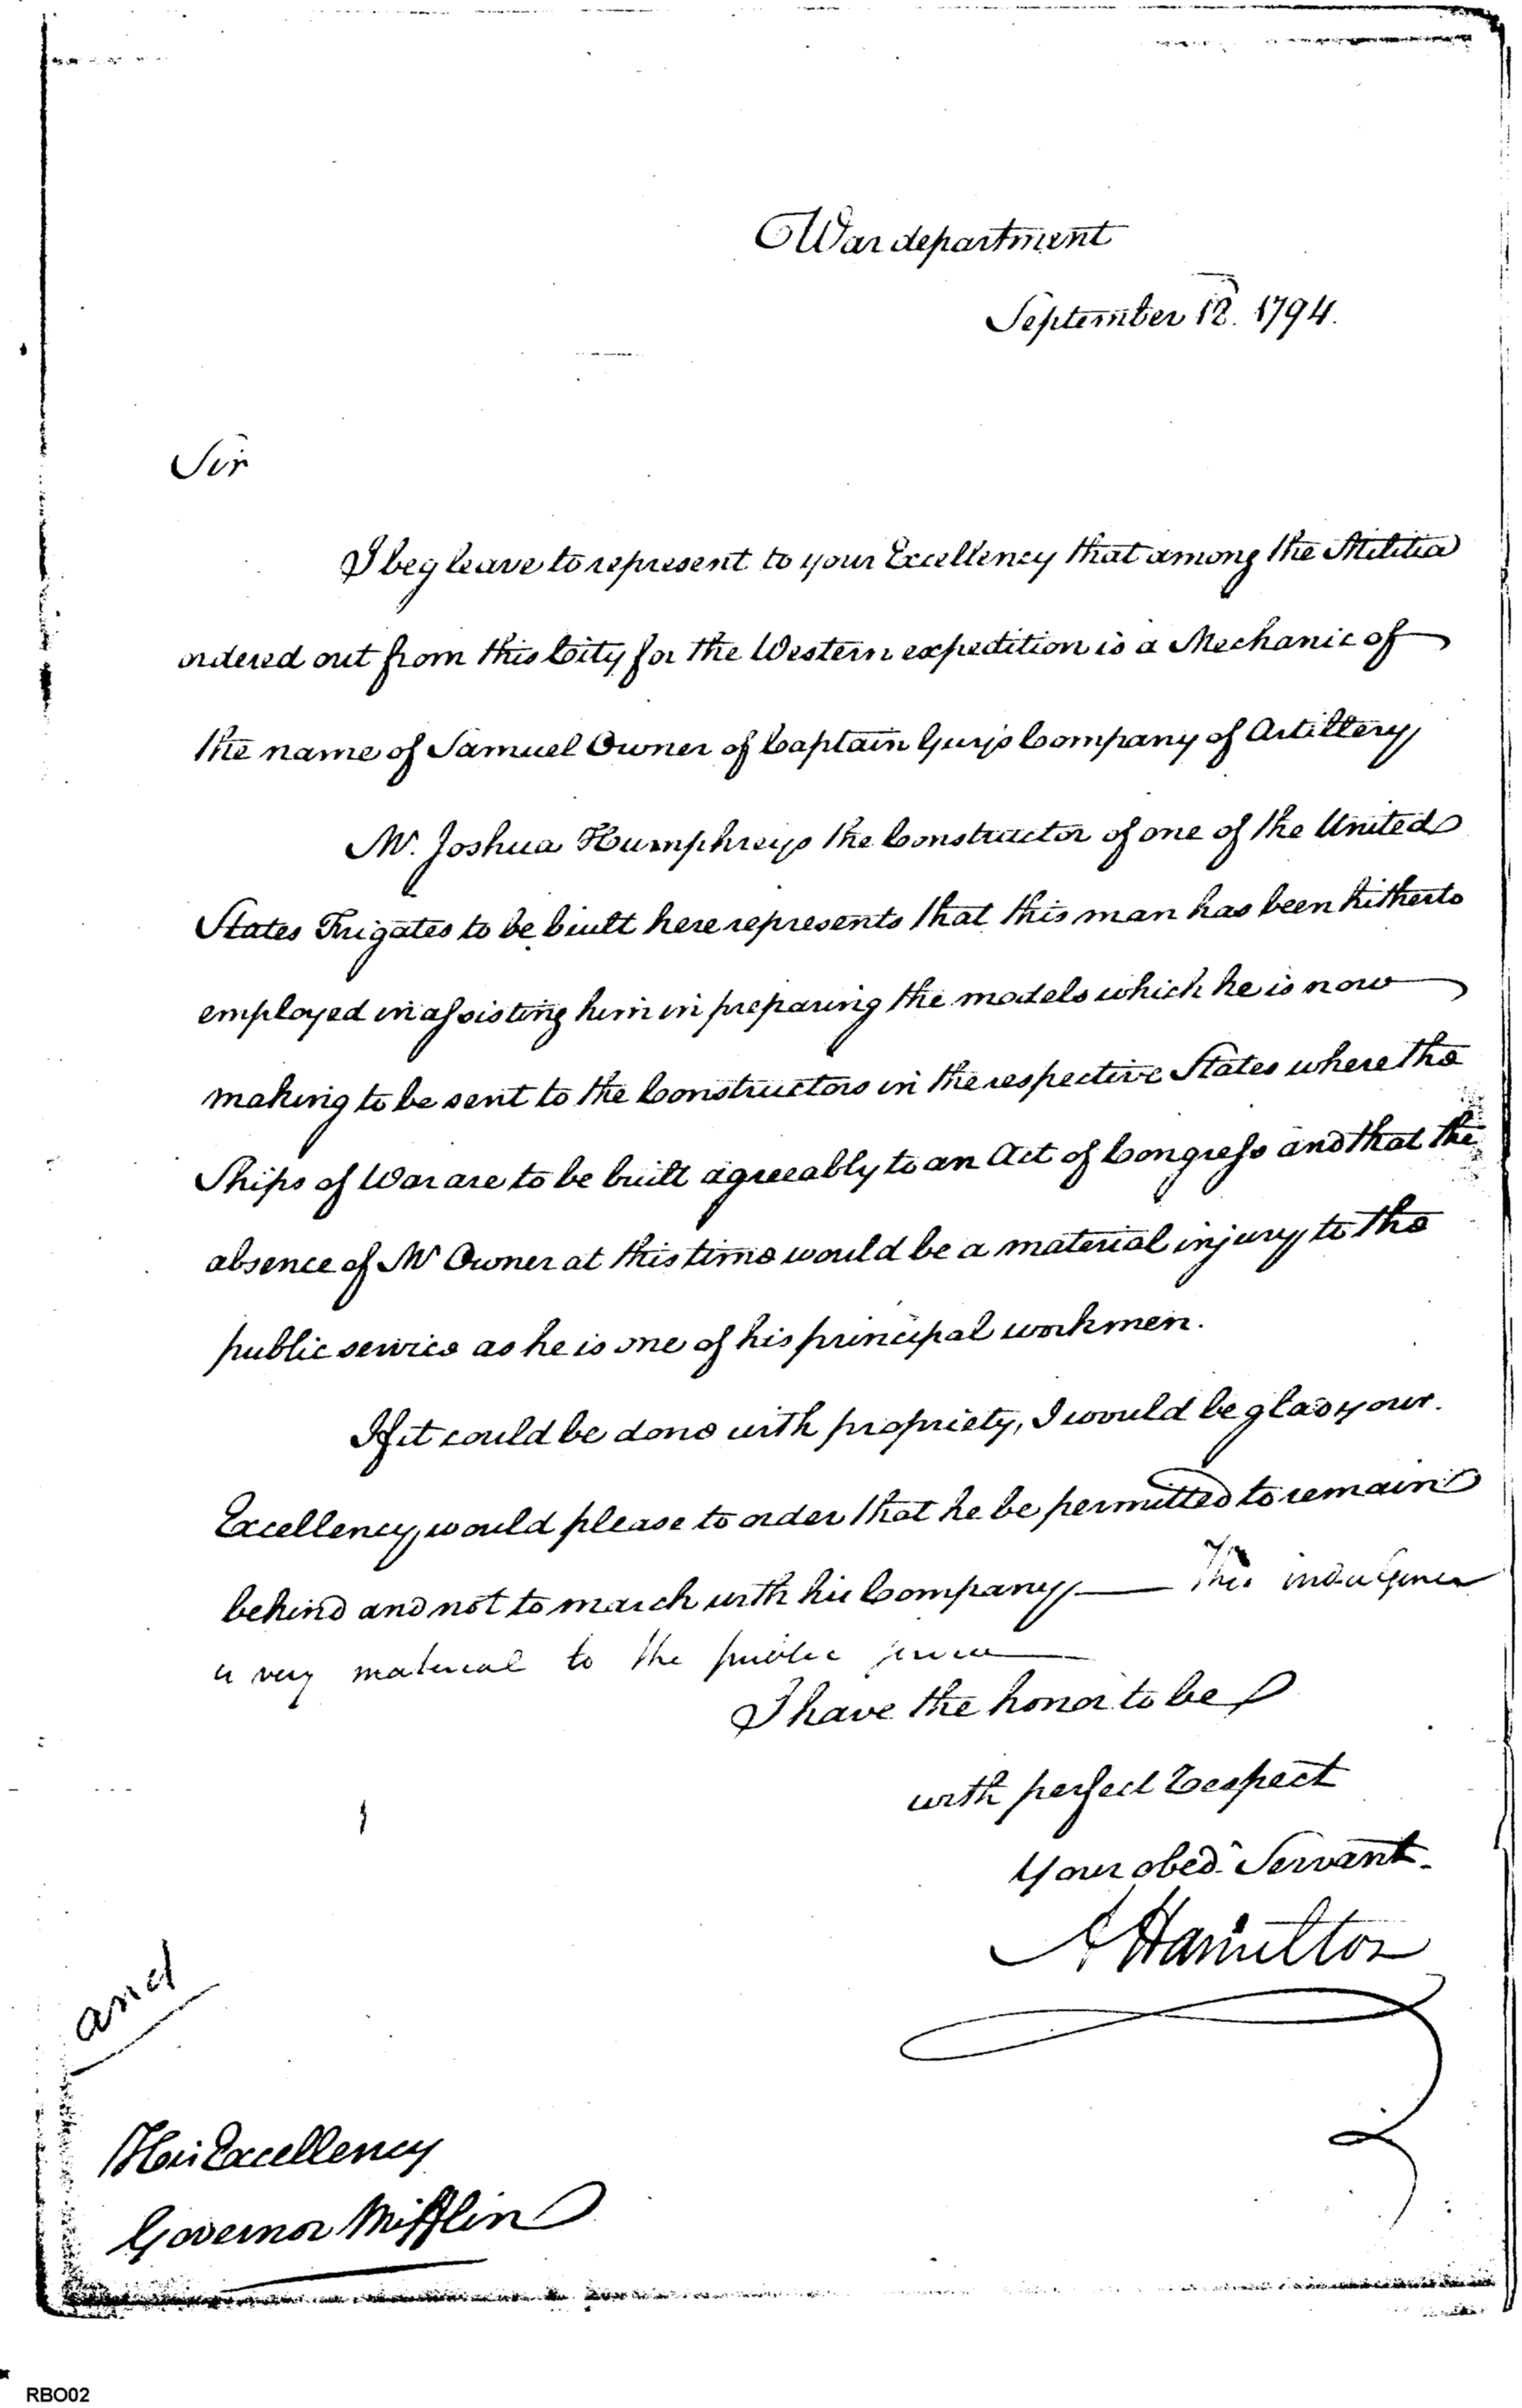 War department
September 12. 1794.
Sir
I beg leave to represent to your Excellency that among the Militia
ordered out from this City for the Western expedition is a Mechanic of
the name of Samuel Owner of Captain Guy's Company of Artillery
Mr. Joshua Humphreys the Constructor of one of the United
States Frigates to be built here represents that this man has been hitherto
employed in assisting him in preparing the models which he is now
making to be sent to the Constructors in the respective States where the
Ships of War are to be built agreeably to an Act of Congress and that the
absence of Mr Owner at this time would be a material injury to the
public service as he is one of his principal workmen.
If it could be done with propriety, I would be glad your
Excellency would please to order that he be permitted to remain
behind and not to march with his Company — This indulgence
is very material to the public service
I have the honor to be
with perfect respect
Your obedt Servant.
A Hamilton
and
His Excellency
Governor Mifflin
RBO02